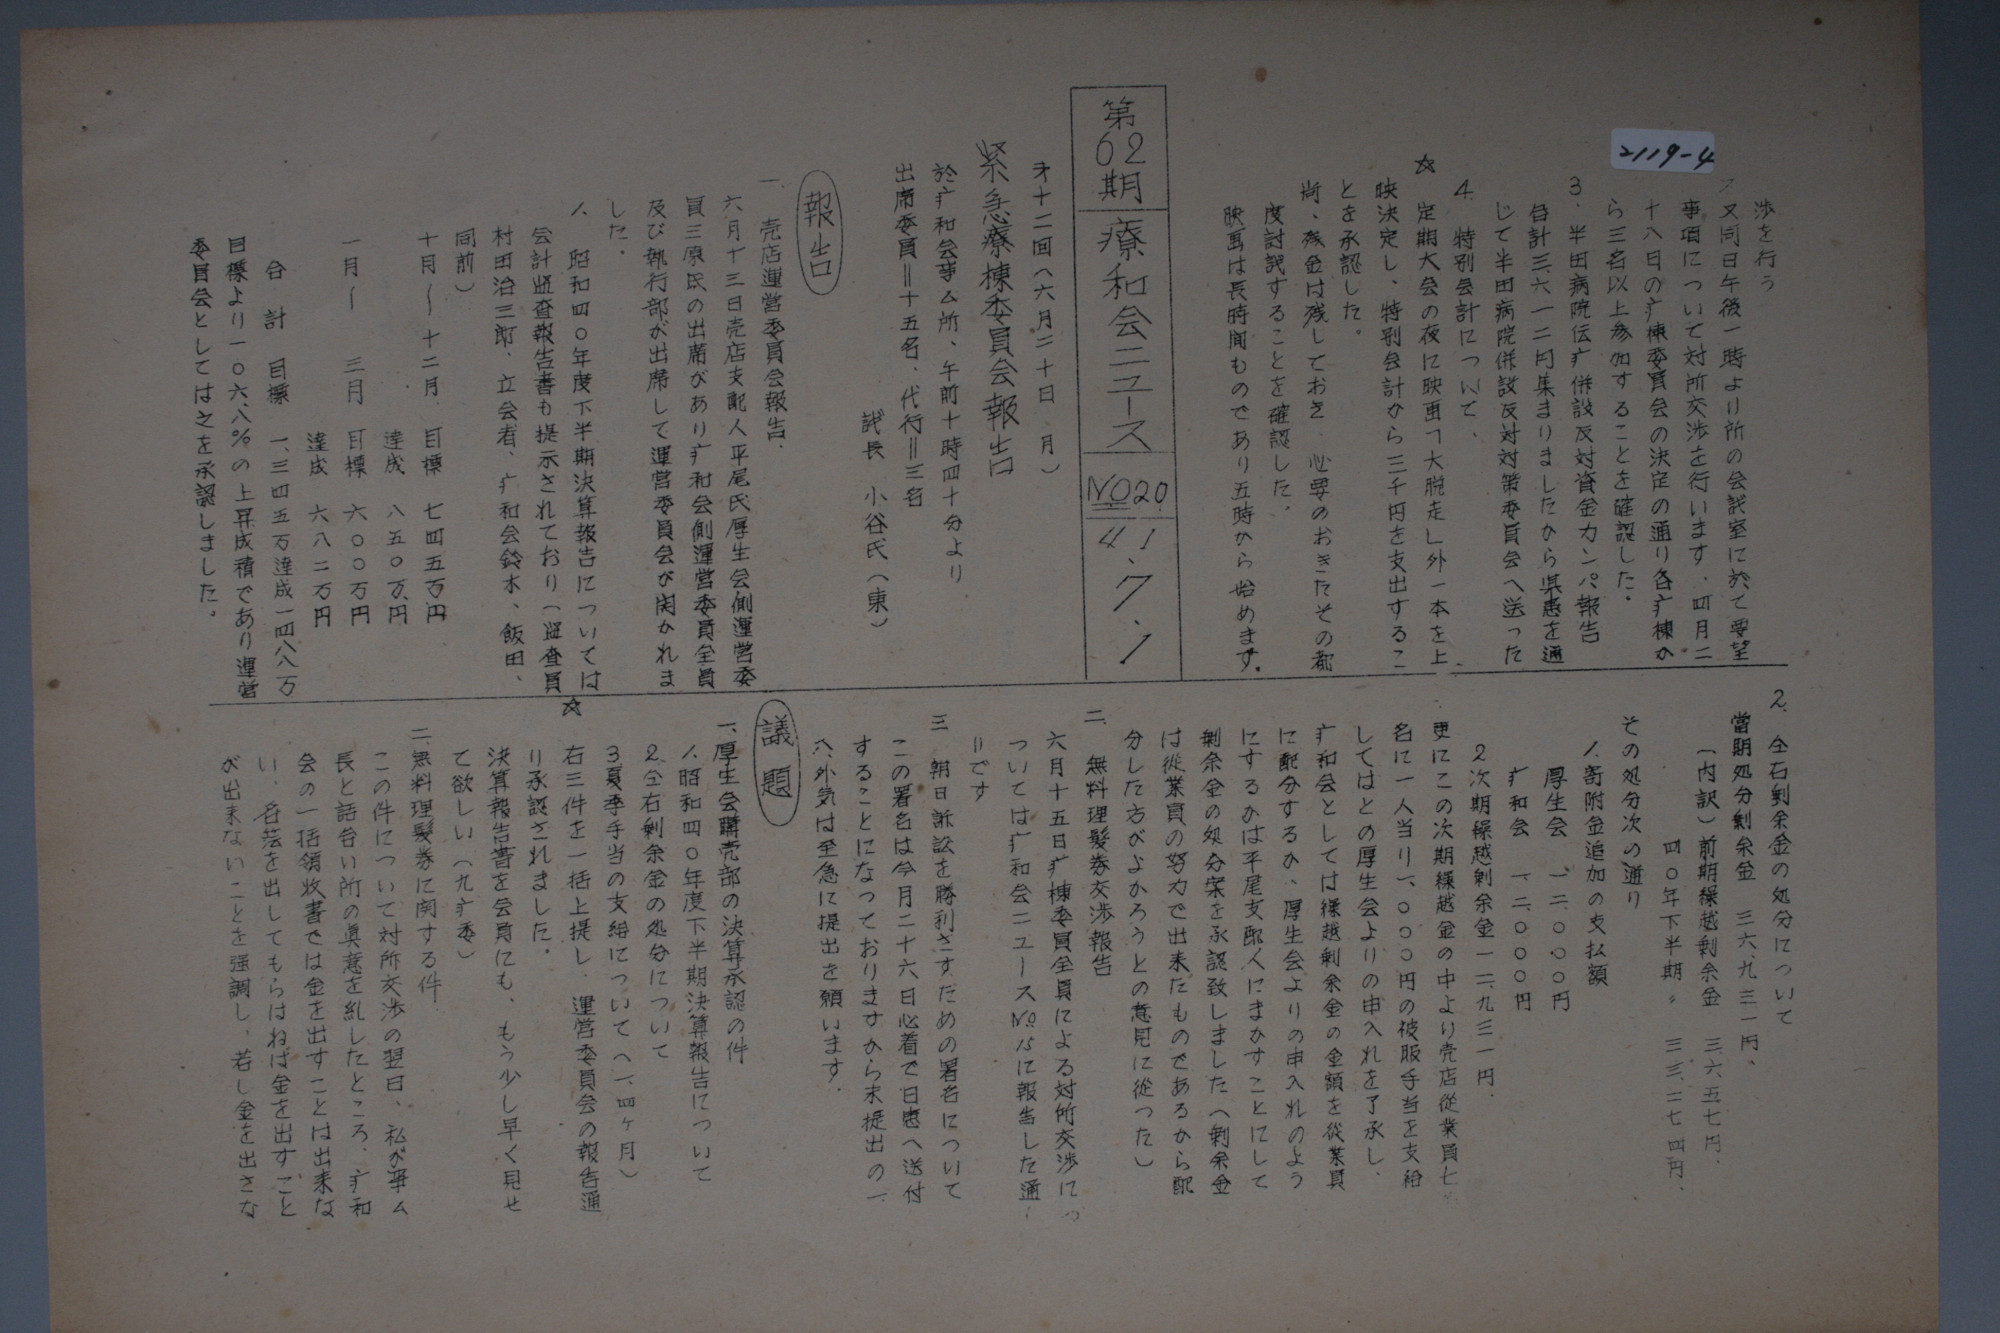 2119-4
渉を行う
又同日午後一時より所の会議室に於て要望
事項について対所交渉を行います．四月二
十八日の疒棟委員会の決定の通り各疒棟か
ら三名以上参加することを確認した．
3．半田病院伝疒併設反対資金カンパ報告
合計三、六一二円集まりましたから県患を通
じて半田病院併設反対対策委員会へ送った
4．特別会計について、
☆ 定期大会の夜に映画「大脱走」外一本を上
映決定し、特別会計から三千円を支出するこ
とを承認した。
尚、残金は残しておき、心要のおきたその都
度討議することを確認した。
映画は長時間ものであり五時から始めます．
第62期 療和会ニュース NO20 41.7.1
才十二回（六月二十日 月）
緊急療棟委員会報告
於疒和会事ム所、午前十時四十分より
出席委員＝十五名、代行＝三名
議長 小谷氏（東）
報告
一、売店運営委員会報告．
六月十三日売店支配人平尾氏厚生会側運営委
員三原氏の出席があり疒和会側運営委員全員
及び執行部が出席して運営委員会が開かれま
した．
1. 昭和四〇年度下半期決算報告については
会計監査報告書も提示されており（監査員
村田治三郎、立会者、疒和会鈴木、飯田、
同前）
十月〜十二月．目標 七四五万円
達成 八五〇万円
一月〜 三月 目標 六〇〇万円
達成 六八二万円
合計 目標 一、三四五万達成一四八八万
目標より一〇六、八％の上昇成積であり運営
委員会としては之を承認しました。
2. 仝右剰余金の処分について
當期処分剰余金 三六、九三一円、
（内訳）前期繰越剰余金 三、六五七円．
四〇年下半期〃 三三、二七四円、
その処分次の通り
1. 寄附金追加の支払額
厚生会 一二、〇〇〇円
疒和会 一二、〇〇〇円
2 次期繰越剰余金一二、九三一円．
更にこの次期繰越金の中より売店従業員七
名に一人当り一、〇〇〇円の被服手当を支給
してはとの厚生会よりの申入れを了承し、
疒和会としては繰越剰余金の金額を従業員
に配分するか、厚生会よりの申入れのよう
にするかは平尾支配人にまかすことにして
剰余金の処分案を承認致しました（剰余金
は従業員の努力で出来たものであるから配
分した方がよかろうとの意見に従った）
二、無料理髪券交渉報告
六月十五日疒棟委員全員による対所交渉に
ついては疒和会ニュースNo.15に報告した通り
です
三 朝日訴訟を勝利さすための署名について
この署名は今月二十六日必着で日患へ送付
することになっておりますから未提出の一
、八、外気は至急に提出を願います．
議題
一、厚生会購売部の決算承認の件
1. 昭和四〇年度下半期決算報告について
2. 仝右剰余金の処分について
3 夏季手当の支給について（一、四ヶ月）
☆ 右三件を一括上提し、運営委員会の報告通
り承認されました．
決算報告書を会員にも、もう少し早く見せ
て欲しい（九疒委）
二、無料理髪券に関する件．
この件について対所交渉の翌日、私が事ム
長と話合い所の眞意を糺したところ、疒和
会の一括領收書では金を出すことは出来な
い、各芸を出してもらはねば金を出すこと
が出来ないことを強調し、若し金を出さな